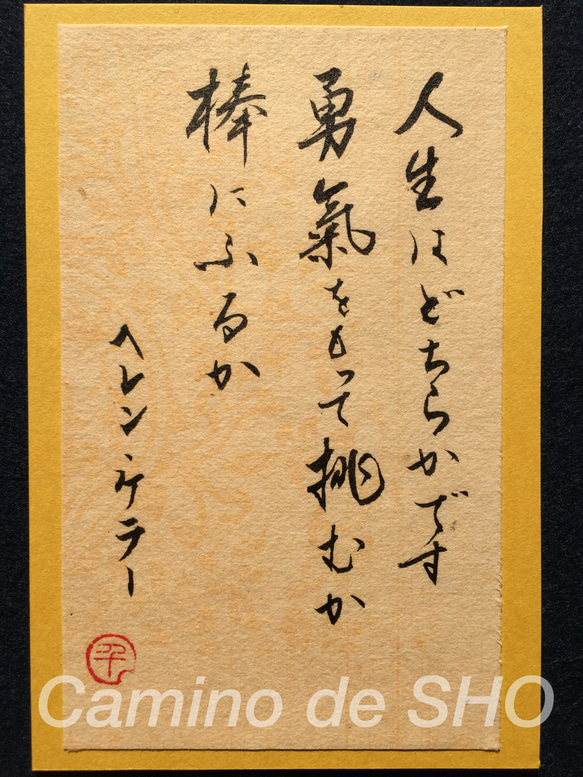 人生はどちらかです
勇氣をもって挑むか
棒にふるか
ヘレン・ケラー
Camino de SHO